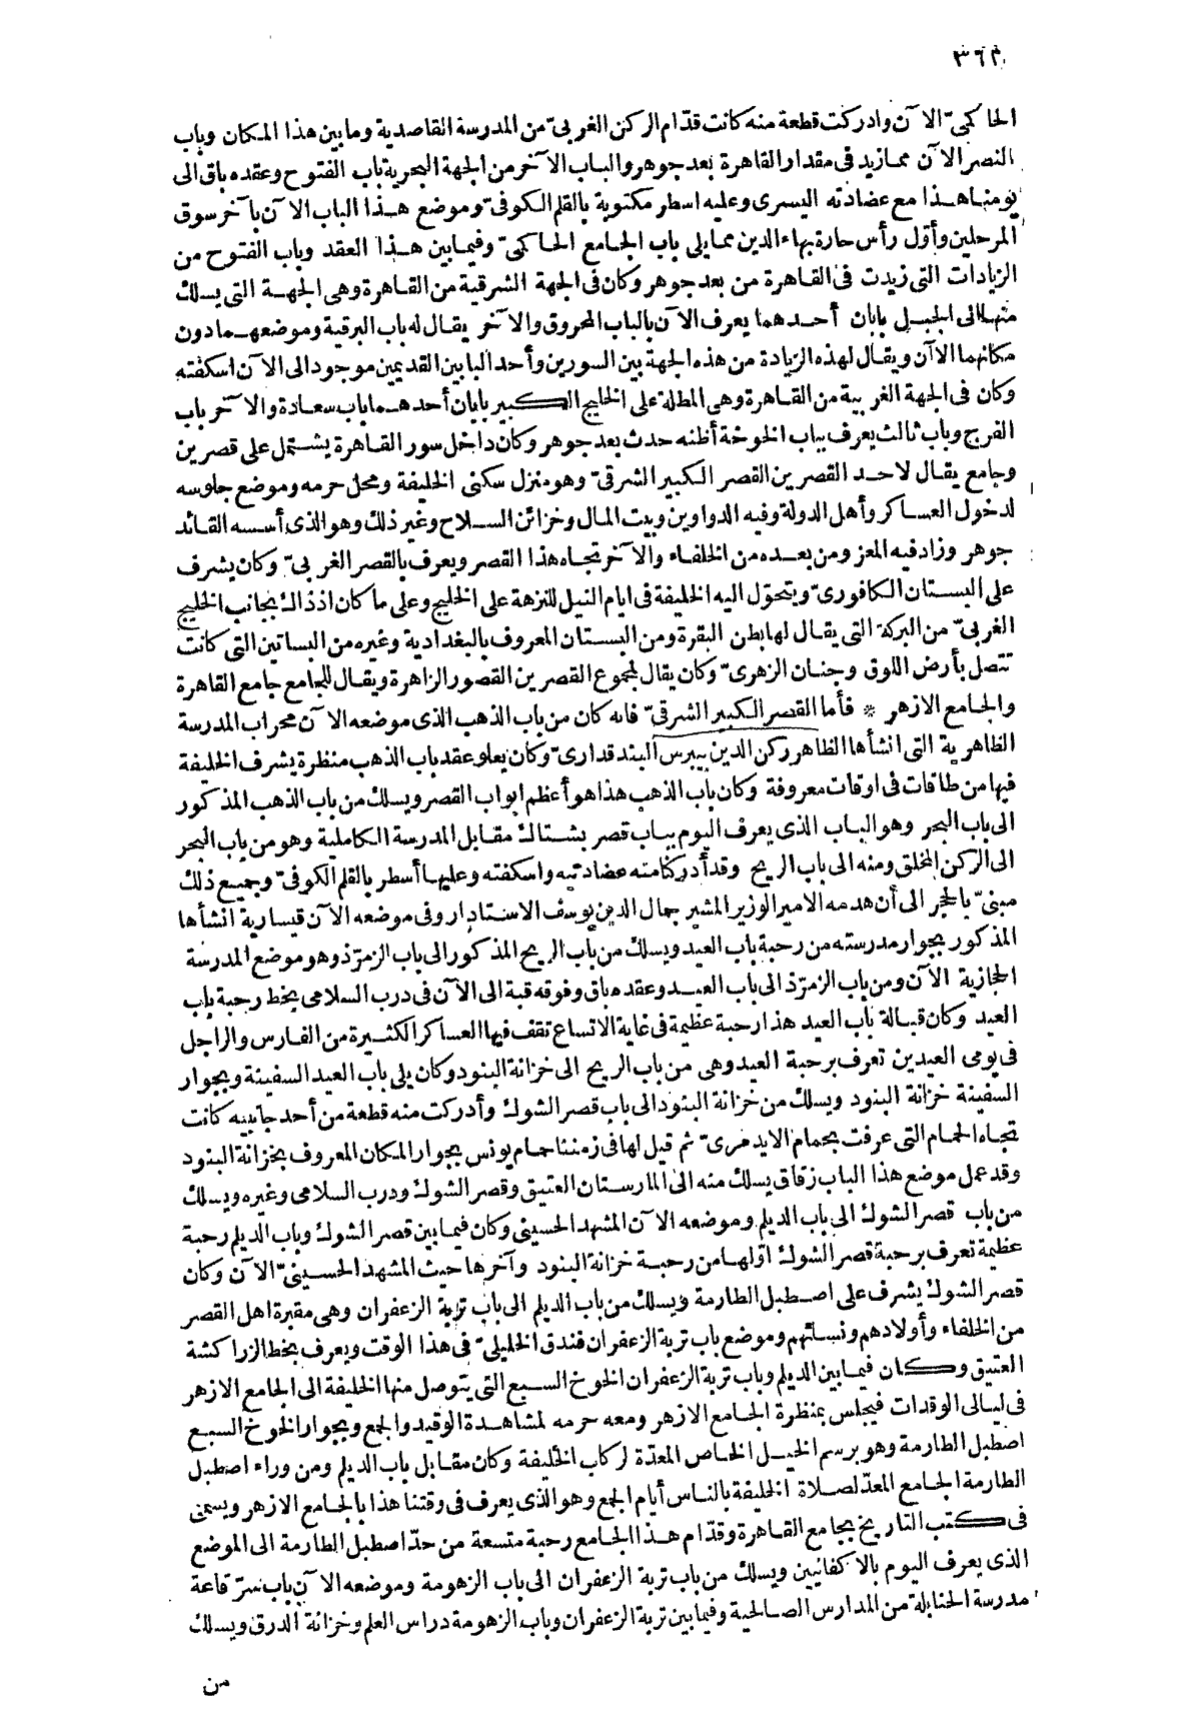 ٣٦٢
الحاكمىّ الآن وادركت قطعة منه كانت قدّام الركن الغربىّ من المدرسة القاصدية وما بين هذا المكان وباب
النصر الآن ممازيد فى مقدار القاهرة بعد جوهر والباب الآخر من الجهة البحرية باب الفتوح وعقده باق الى
يومنا هذا مع عضادته اليسرى وعليه اسطر مكتوبة بالقلم الكوفىّ وموضع هذا الباب الآن بآخر سوق
المرحلين وأوّل رأس حارة بهاء الدين مما يلى باب الجامع الحاكمىّ وفيما بين هذا العقد وباب الفتوح من
الزيادات التى زيدت فى القاهرة من بعد جوهر وكان فى الجهة الشرقية من القاهرة وهى الجهة التى يسلك
منها الى الجبل بابان أحدهما يعرف الآن بالباب المحروق والآخر يقال له باب البرقية وموضعهما دون
مكانهما الآن ويقال لهذه الزيادة من هذه الجهة بين السورين وأحد البابين القديمين موجود الى الآن اسكفته
وكان فى الجهة الغربية من القاهرة وهى المطلة على الخليج الكبير بابان أحدهما باب سعادة والآخر باب
الفرج وباب ثالث يعرف بباب الخوخة أظنه حدث بعد جوهر وكان داخل سور القاهرة يشتمل على قصرين
وجامع يقال لاحد القصرين القصر الكبير الشرقىّ وهو منزل سكنى الخليفة ومحل حرمه وموضع جلوسه
لدخول العساكر وأهل الدولة وفيه الدواوين وبيت المال وخزائن السلاح وغير ذلك وهو الذى أسسه القائد
جوهر وزاد فيه المعز ومن بعده من الخلفاء والآخر تجاه هذا القصر ويعرف بالقصر الغربىّ وكان يشرف
على البستان الكافورىّ ويتحوّل اليه الخليفة فى ايام النيل للنزهة على الخليج وعلى ما كان اذ ذاك بجانب الخليج
الغربىّ من البركة التى يقال لها بطن البقرة ومن البستان المعروف بالبغدادية وغيره من البساتين التى كانت
تتصل بأرض اللوق وجنان الزهرىّ وكان يقال لمجموع القصرين القصور الزاهرة ويقال للجامع جامع القاهرة
والجامع الازهر * فأما القصر الكبير الشرقىّ فانه كان من باب الذهب الذى موضعه الآن محراب المدرسة
الظاهرية التى انشأها الظاهر ركن الدين بيبرس البندقدارىّ وكان يعلو عقد باب الذهب منظرة يشرف الخليفة
فيها من طاقات فى اوقات معروفة وكان باب الذهب هذا هو أعظم ابواب القصر ويسلك من باب الذهب المذكور
الى باب البحر وهو الباب الذى يعرف اليوم بباب قصر بشتاك مقابل المدرسة الكاملية وهو من باب البحر
الى الركن المخلق ومنه الى باب الريح وقد أدركنا منه عضادتيه واسكفته وعليها أسطر بالقلم الكوفىّ وجميع ذلك
مبنىّ بالحجر الى أن هدمه الامير الوزير المشير جمال الدين يوسف الاستادار وفى موضعه الآن قيسارية انشأها
المذكور بجوار مدرسته من رحبة باب العيد ويسلك من باب الريح المذكور الى باب الزمرّذ وهو موضع المدرسة
الحجازية الآن ومن باب الزمرّذ الى باب العيد وعقده باق وفوقه قبة الى الآن فى درب السلامى بخط رحبة باب
العيد وكان قبالة باب العيد هذا رحبة عظيمة فى غاية الاتساع تقف فيها العساكر الكثيرة من الفارس والراجل
فى يومى العيدين تعرف برحبة العيد وهى من باب الريح الى خزانة البنود وكان يلى باب العيد السفينة وبجوار
السفينة خزانة البنود ويسلك من خزانة البنود الى باب قصر الشوك وأدركت منه قطعة من أحد جانبيه كانت
تجاه الحمام التى عرفت بحمام الايدمرىّ ثم قيل لها فى زمننا حمام يونس بجوار المكان المعروف بخزانة البنود
وقد عمل موضع هذا الباب زقاق يسلك منه الى المارستان العتيق وقصر الشوك ودرب السلامى وغيره ويسلك
من باب قصر الشوك الى باب الديلم وموضعه الآن المشهد الحسينى وكان فيما بين قصر الشوك وباب الديلم رحبة
عظيمة تعرف برحبة قصر الشوك اوّلها من رحبة خزانة البنود وآخرها حيث المشهد الحسينىّ الآن وكان
قصر الشوك يشرف على اصطبل الطارمة ويسلك من باب الديلم الى باب تربة الزعفران وهى مقبرة اهل القصر
من الخلفاء وأولادهم ونسائهم وموضع باب تربة الزعفران فندق الخليلىّ فى هذا الوقت ويعرف بخط الزراكشة
العتيق وكان فيما بين الديلم وباب تربة الزعفران الخوخ السبع التى يتوصل منها الخليفة الى الجامع الازهر
فى ليالى الوقدات فيجلس بمنظرة الجامع الازهر ومعه حرمه لمشاهدة الوقيد والجمع وبجوار الخوخ السبع
اصطبل الطارمة وهو برسم الخيل الخاص المعدّة لركاب الخليفة وكان مقابل باب الديلم ومن وراء اصطبل
الطارمة الجامع المعدّ لصلاة الخليفة بالناس أيام الجمع وهو الذى يعرف فى وقتنا هذا بالجامع الازهر ويسمى
فى كتب التاريخ بجامع القاهرة وقدّام هذا الجامع رحبة متسعة من حدّ اصطبل الطارمة الى الموضع
الذى يعرف اليوم بالاكفانيين ويسلك من باب تربة الزعفران الى باب الزهومة وموضعه الآن باب سرّ قاعة
مدرسة الحنابلة من المدارس الصالحية وفيما بين تربة الزعفران وباب الزهومة دراس العلم وخزانة الدرق ويسلك
من